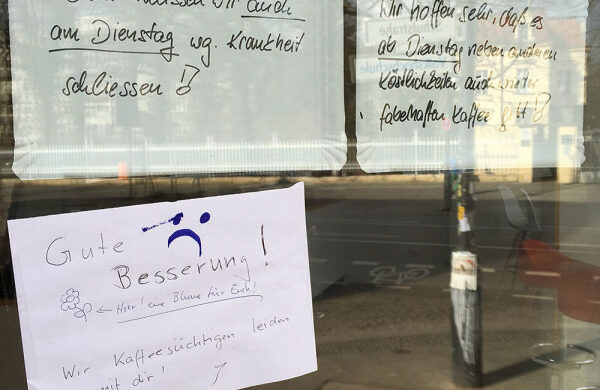 müssen wir auch
am Dienstag wg. Krankheit
schliessen!
Wir hoffen sehr, daß es
ab Dienstag neben anderen
Köstlichkeiten auch wieder
fabelhaften Kaffee gibt!
Gute
Besserung!
Hier! eine Blume für Euch!
Wir Kaffeesüchtigen leiden
mit dir!